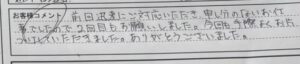 お客様コメント
前回迅速にご対応いただき、申し分のないお仕
事でしたので2回目もお願いしました。今回も手際よくおた
ついだていただきました。ありがとうございました。